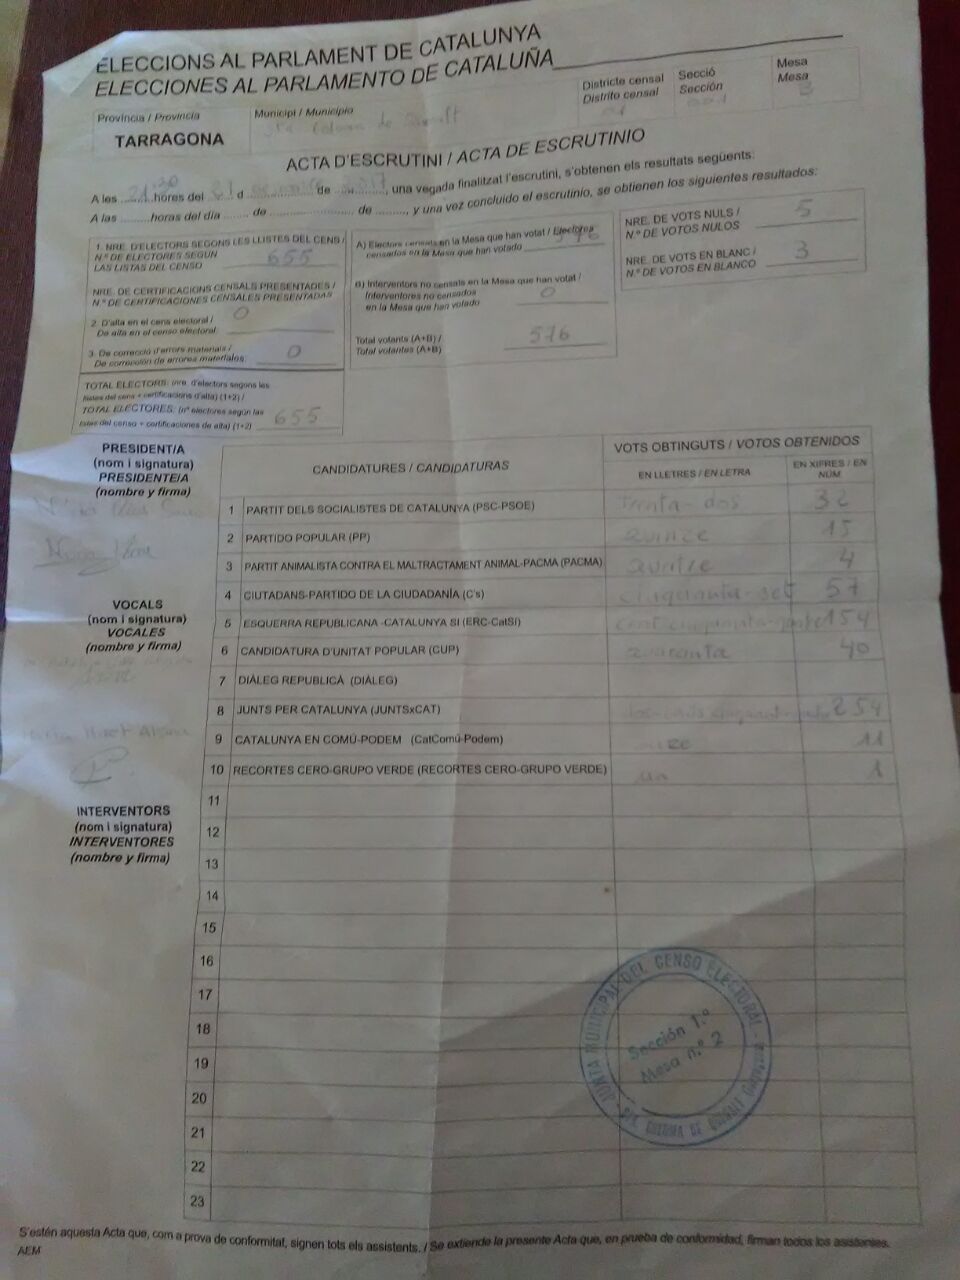 ELECCIONS AL PARLAMENT DE CATALUNYA
ELECCIONES AL PARLAMENTO DE CATALUÑA
Província / Provincia
TARRAGONA
Municipi / Municipio
Sta Coloma de Queralt
Districte censal
Distrito censal
01
Secció
Sección
001
Mesa
Mesa
B
ACTA D'ESCRUTINI / ACTA DE ESCRUTINIO
A les 21:20 hores del 21 d de 2017, una vegada finalitzat l'escrutini, s'obtenen els resultats següents:
A las ......... horas del día ....... de .......................... de ........, y una vez concluido el escrutinio, se obtienen los siguientes resultados:
1. NRE. D'ELECTORS SEGONS LES LLISTES DEL CENS /
N.º DE ELECTORES SEGÚN
LAS LISTAS DEL CENSO 655
NRE. DE CERTIFICACIONS CENSALS PRESENTADES /
N.º DE CERTIFICACIONES CENSALES PRESENTADAS
2. D'alta en el cens electoral /
De alta en el censo electoral 0
3. De correcció d'errors materials /
De corrección de errores materiales 0
TOTAL ELECTORS: (nre. d'electors segons les
llistes del cens + certificacions d'alta) (1+2) /
TOTAL ELECTORES: (nº electores según las
listas del censo + certificaciones de alta) (1+2) 655
A) Electors censats en la Mesa que han votat / Electores
censados en la Mesa que han votado 576
B) Interventors no censats en la Mesa que han votat /
Interventores no censados
en la Mesa que han votado 0
Total votants (A+B) /
Total votantes (A+B) 576
NRE. DE VOTS NULS /
N.º DE VOTOS NULOS 5
NRE. DE VOTS EN BLANC /
N.º DE VOTOS EN BLANCO 3
PRESIDENT/A
(nom i signatura)
PRESIDENTE/A
(nombre y firma)
VOCALS
(nom i signatura)
VOCALES
(nombre y firma)
INTERVENTORS
(nom i signatura)
INTERVENTORES
(nombre y firma)
CANDIDATURES / CANDIDATURAS
VOTS OBTINGUTS / VOTOS OBTENIDOS
EN LLETRES / EN LETRA
EN XIFRES / EN NÚM
1 PARTIT DELS SOCIALISTES DE CATALUNYA (PSC-PSOE) trenta-dos 32
2 PARTIDO POPULAR (PP) quinze 15
3 PARTIT ANIMALISTA CONTRA EL MALTRACTAMENT ANIMAL-PACMA (PACMA) quatre 4
4 CIUTADANS-PARTIDO DE LA CIUDADANÍA (C's) cinquanta-set 57
5 ESQUERRA REPUBLICANA -CATALUNYA SÍ (ERC-CatSí) cent cinquanta-quatre 154
6 CANDIDATURA D'UNITAT POPULAR (CUP) quaranta 40
7 DIÀLEG REPUBLICÀ (DIÀLEG)
8 JUNTS PER CATALUNYA (JUNTSxCAT) 254
9 CATALUNYA EN COMÚ-PODEM (CatComú-Podem) onze 11
10 RECORTES CERO-GRUPO VERDE (RECORTES CERO-GRUPO VERDE) un 1
11
12
13
14
15
16
17
18
19
20
21
22
23
JUNTA MUNICIPAL DEL CENSO ELECTORAL
STA. COLOMA DE QUERALT
Sección 1.ª
Mesa n.º 2
S'estén aquesta Acta que, com a prova de conformitat, signen tots els assistents. / Se extiende la presente Acta que, en prueba de conformidad, firman todos los asistentes.
AEM